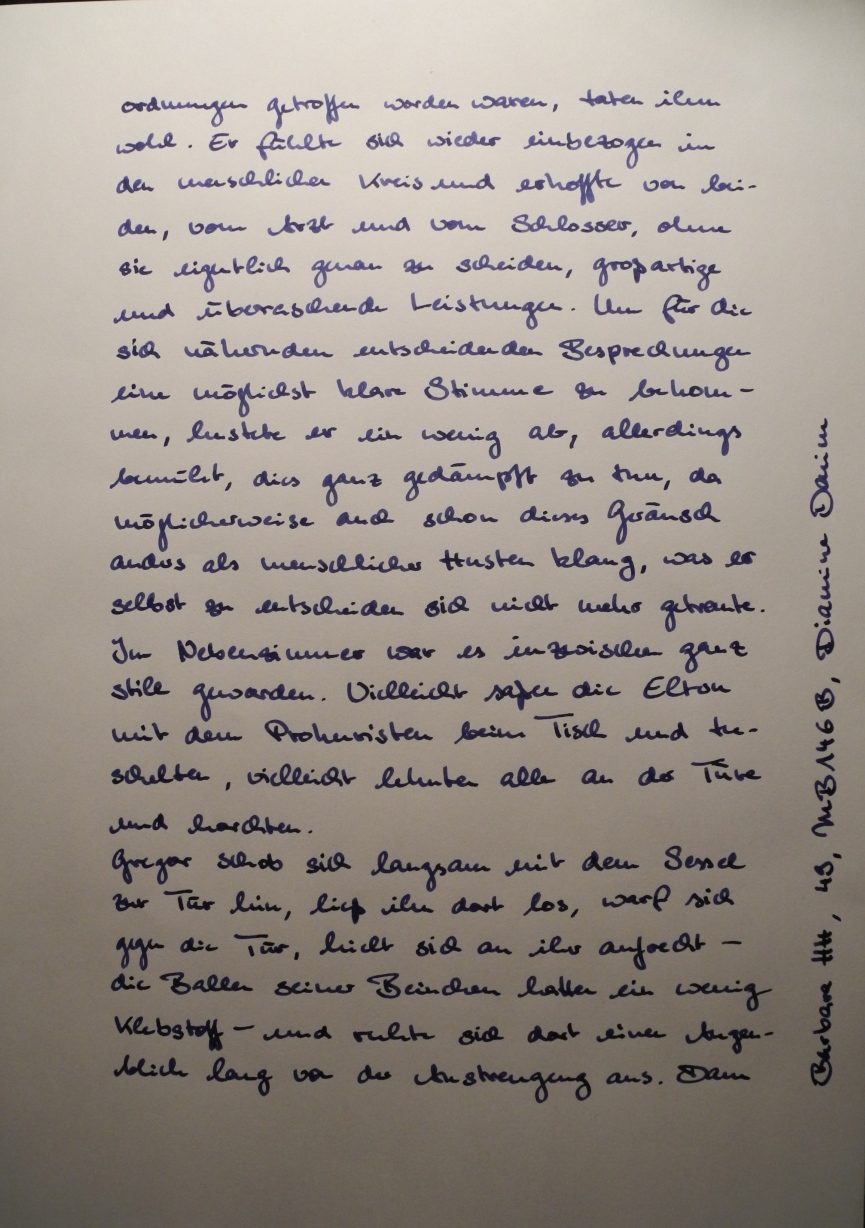 ordnungen getroffen worden waren, taten ihm
wohl. Er fühlte sich wieder einbezogen in
den menschlichen Kreis und erhoffte von bei-
den, vom Arzt und vom Schlosser, ohne
sie eigentlich genau zu scheiden, großartige
und überraschende Leistungen. Um für die
sich nähernden entscheidenden Besprechungen
eine möglichst klare Stimme zu bekom-
men, hustete er ein wenig ab, allerdings
bemüht, dies ganz gedämpft zu tun, da
möglicherweise auch schon dieses Geräusch
anders als menschlicher Husten klang, was er
selbst zu entscheiden sich nicht mehr getraute.
Im Nebenzimmer war es inzwischen ganz
still geworden. Vielleicht saßen die Eltern
mit dem Prokuristen beim Tisch und tu-
schelten, vielleicht lehnten alle an der Türe
und horchten.
Gregor schob sich langsam mit dem Sessel
zur Tür hin, ließ ihn dort los, warf sich
gegen die Tür, hielt sich an ihr aufrecht –
die Ballen seiner Beinchen hatten ein wenig
Klebstoff – und ruhte sich dort einen Augen-
blick lang von der Anstrengung aus. Dann
Barbara HH, 49, MB146B, Diamine Denim